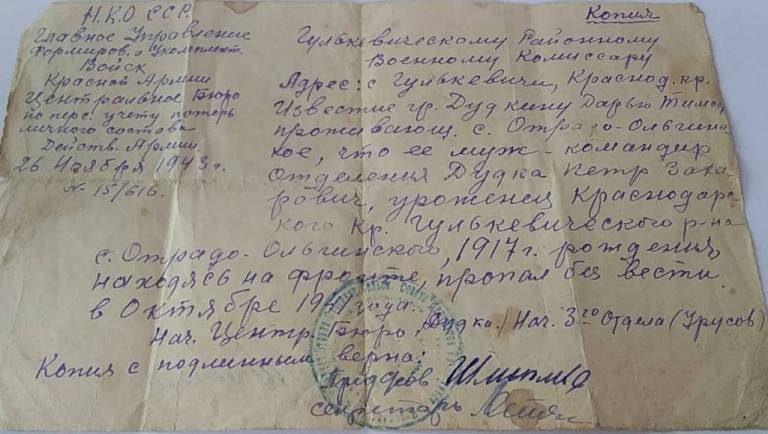 Н.К.О СССР.
Главное Управление
Формиров. и Укомплект.
Войск
Красной Армии
Центральное Бюро
по перс. учету потерь
личного состава
Действ. Армии.
26 Ноября 1943 г.
№ 15/616.
Копия
Гулькевическому Районному
Военному Комиссару
Адрес: с Гулькевичи, Краснод. кр.
Известие гр. Дудкину Дарью Тимоф
проживающ. с. Отрадо-Ольгинс
кое, что ее муж - командир
отделения Дудка Петр Заха-
рович, уроженец Краснодарс-
кого кр. Гулькевического р-на
с. Отрадо-Ольгинского, 1917 г. рождения,
находясь на фронте, пропал без вести
в Октябре 19 года.
Нач. Центр. Бюро Дудка / Нач. 3го Отдела (Урусов)
Копия с подлинным верна:
секретарь